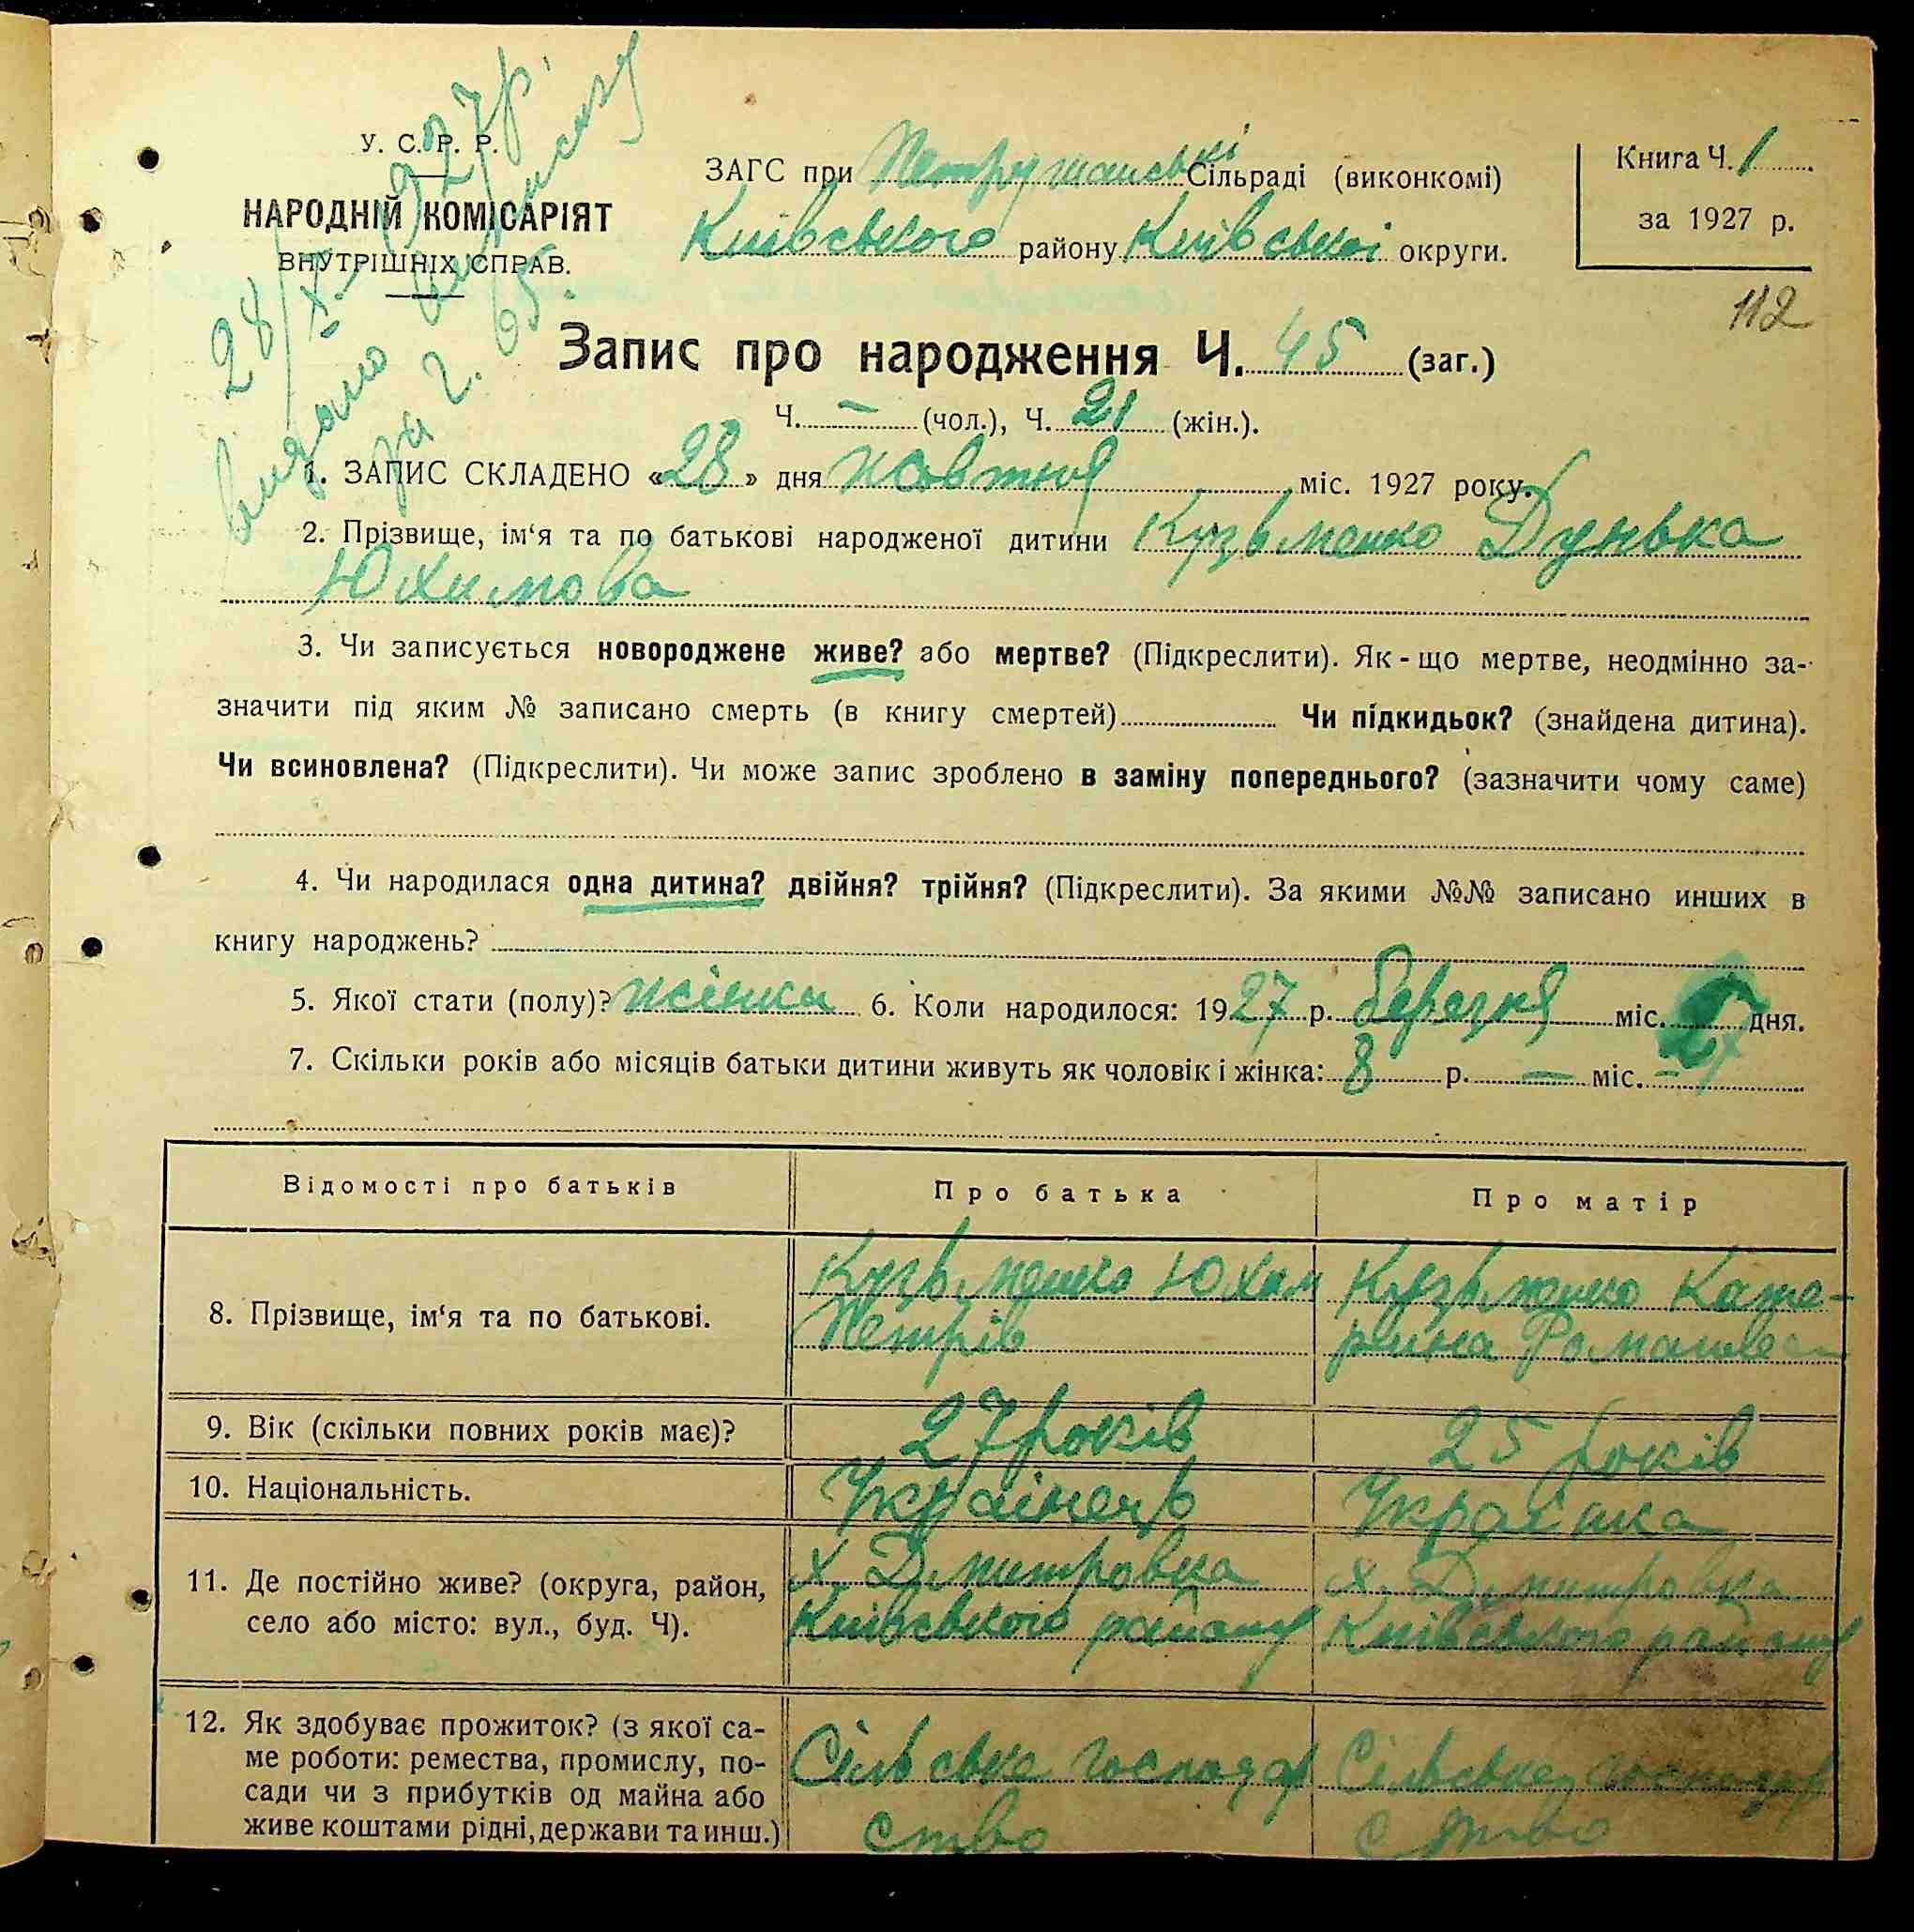 У. С. Р. Р.
НАРОДНІЙ КОМІСАРІЯТ
ВНУТРІШНІХ СПРАВ.
28/X 1927р.
видано виписку
за ч. 65.
ЗАГС при Петрушанські Сільраді (виконкомі)
Київського району Київської округи.
Книга Ч. 1
за 1927 р.
112
Запис про народження Ч. 45 (заг.)
Ч. — (чол.), Ч. 21 (жін.).
1. ЗАПИС СКЛАДЕНО «28» дня жовтня міс. 1927 року.
2. Прізвище, ім‘я та по батькові народженої дитини Кузьменко Дунька
Юхимова
3. Чи записується новороджене живе? або мертве? (Підкреслити). Як-що мертве, неодмінно за-
значити під яким № записано смерть (в книгу смертей) Чи підкидьок? (знайдена дитина).
Чи всиновлена? (Підкреслити). Чи може запис зроблено в заміну попереднього? (зазначити чому саме)
4. Чи народилася одна дитина? двійня? трійня? (Підкреслити). За якими №№ записано инших в
книгу народжень?
5. Якої стати (полу)? жінки 6. Коли народилося: 1927 р. березня міс. дня.
7. Скільки років або місяців батьки дитини живуть як чоловік і жінка: 8 р. — міс.
Відомості про батьків Про батька Про матір
8. Прізвище, ім‘я та по батькові. Кузьменко Юхим Петрів Кузьменко Кате-
рина
9. Вік (скільки повних років має)? 27 років 25 років
10. Національність. Українець Українка
11. Де постійно живе? (округа, район, х. Дмитровка х. Дмитровка
село або місто: вул., буд. Ч). Київського району Київського району
12. Як здобуває прожиток? (з якої са-
ме роботи: ремества, промислу, по- Сільське господар Сільське господар
сади чи з прибутків од майна або
живе коштами рідні, держави та инш.) ство ство